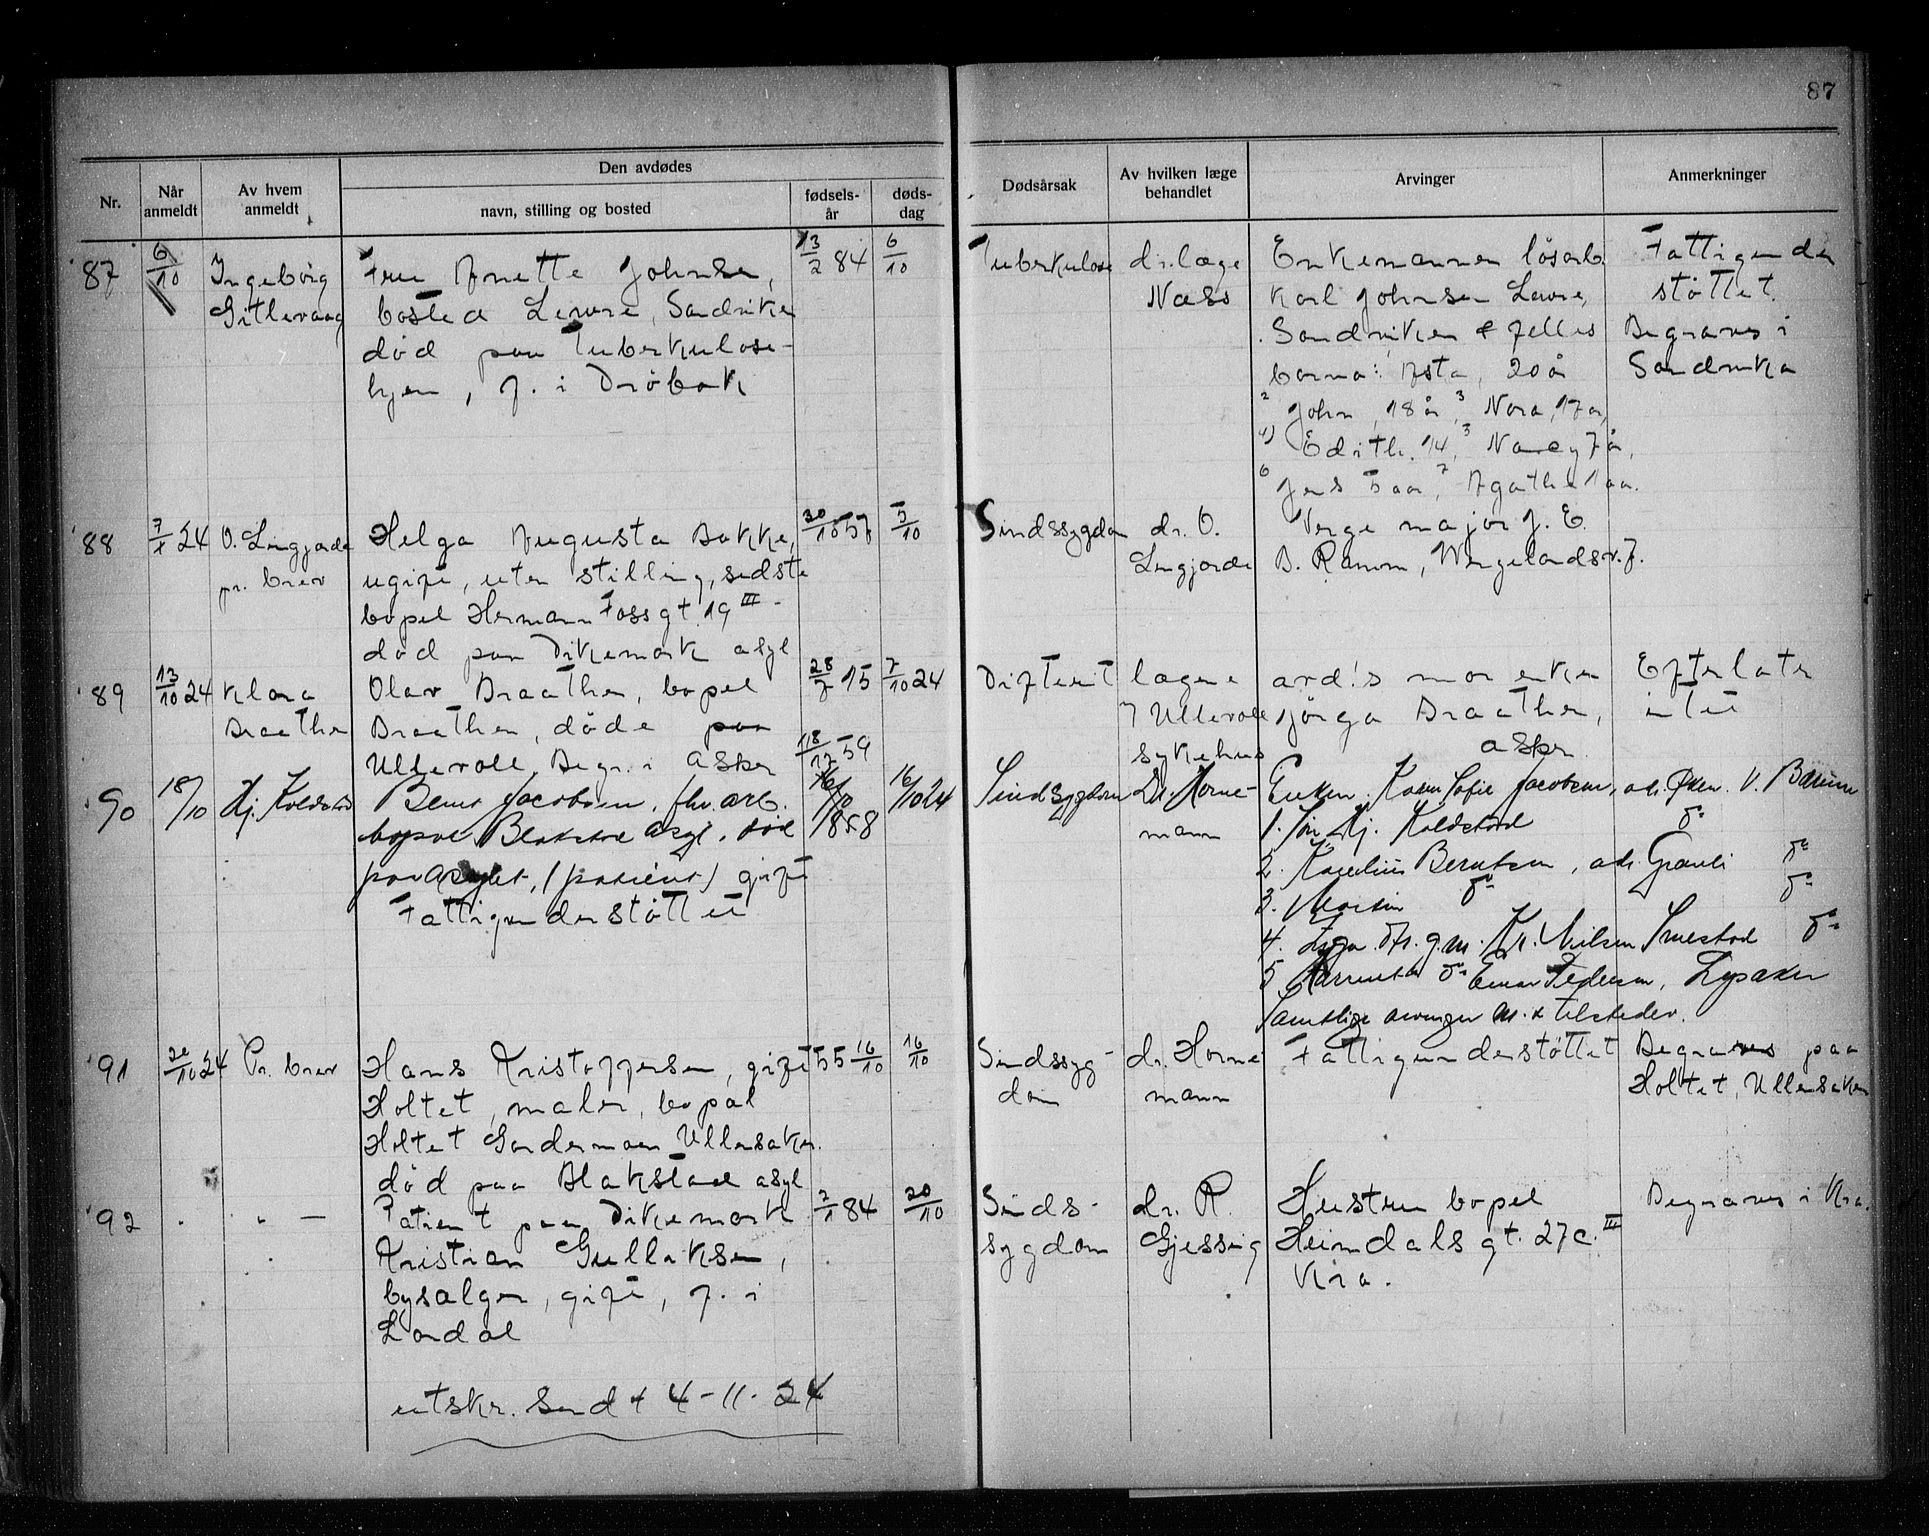 87
Nr.
Når anmeldt
Av hvem anmeldt
Den avdødes
navn, stilling og bosted
fødsels-år
døds-dag
Dødsårsak
Av hvilken læge behandlet
Arvinger
Anmerkninger
87
6/10
Ingeborg
Gitlevaag
Fru Anette Johnsen,
bosted Løvre, Sandviken
død paa Tuberkulose-
hjem, f. i Drøbak
13/2 84
6/10
Tuberkulose
dr.læge
Næss
Enkemannen løsarb.
Karl Johnsen Løvre,
Sandviken & felles
barna: Asta, 20 år
2 John, 18 år, 3 Nora, 17 år,
4) Edith. 14, 3 Nancy 7 år,
6 Jens 5 aar, 7 Agathe 1 aar.
Fattigunder
støttet.
Begraves i
Sandvika
88
24
O. Lingjærde
pr. brev
Helga Augusta Bakke,
ugift, uten stilling, sidste
bopel Hermann Foss gt. 19 III -
død paa Dikemark asyl
57
5/10
Sindssygdom
dr. O.
Lingjærde
Verge major J. E.
B. Ramm, Wergelandsv. 7.
89
13/10 24
Klara
Braathen
Olav Braathen, bopel
Braathen, døde paa
Ullevoll. Begr. i Asker
28/7 15
7/10 24
Difterit
lægene
Ullevole
sykehus
avd!s mor enke
Jørga Braathen,
Asker.
Efterlater
intet
90
18/10
Hj. Koldstad
Bernt Jacobsen, fhv. arb.
bopæl Blakstad Asyl. død
paa Asylet, (patient) gift
Fattigunderstøttet
18/12 59
16/10 1858
16/10 24
Sindssygdom
Dr. Horne-
mann
Enken Karen Sofie Jacobsen, adr. Øken. V. Bærum
1. Hj. Koldstad do
2. Karelius Berntsen, adr. Grauli do
3. Martin do do
4. g.m. Kr. Nilsen Smestad do
5 do Einar Pedersen, Lysaker
Samtlige arvinger m. & tilsteder.
91
20/10 24
Pr. brev
Hans Kristoffersen, gift
Holtet, maler, bopæl
Holtet Gardermoen Ullensaker.
død paa Blakstad asyl
55 16/10
16/10
Sindssyg-
dom
dr. Horne
mann
Fattigunderstøttet
Begraves paa
Holtet, Ullensaker
92
" —
Patient paa Dikemark
Kristian Gulliksen,
bysælger, gift, f. i
Lardal
84
20/10
Sinds-
sygdom
dr. R.
Gjessing
Hustru bopel
Heimdals gt. 27 c. III
Kra.
Begraves i Kra.
utskr. Sendt 4-11-24